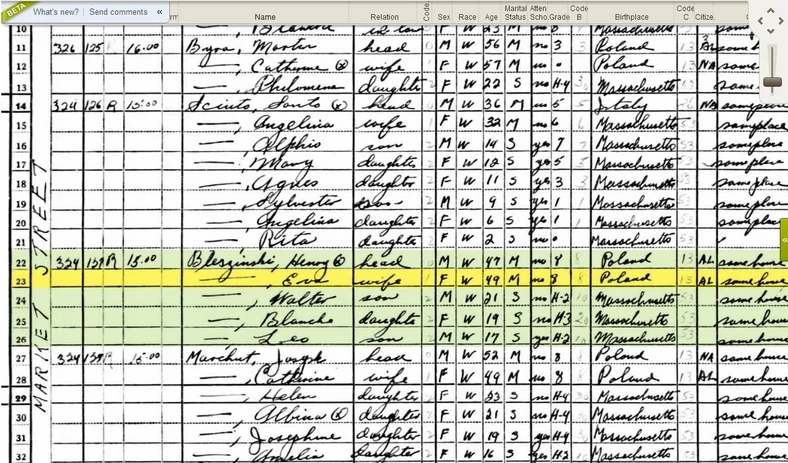 BETA What's new? Send comments «
Name Relation Code Sex Race Age Marital Status Atten Scho. Grade Code B Birthplace Code C Citize.
MARKET STREET
10 Massachusetts
11 326 125 R 16.00 Byra, head M W 56 M no 3 Poland 13
12 ——, Catherine ⓧ wife F W 57 M no 0 Poland 13 NA same
13 ——, Philomena daughter F W 22 S no H-4 Massachusetts same
14 324 126 R 15:00 Sciuto, Santo ⓧ head M W 36 M no 5 Italy NA same place
15 ——, Angelina wife F W 32 M no 6 Massachusetts same place
16 ——, Alphio son M W 14 S yes 7 Massachusetts same place
17 ——, Mary daughter F W 12 S yes 5 Massachusetts same place
18 ——, Agnes daughter F W 11 S yes 3 Massachusetts same place
19 ——, Sylvester son M W 9 S yes 1 Massachusetts same place
20 ——, Angelina daughter F W 6 S yes 1 Massachusetts same place
21 ——, Rita daughter F W 2 S no 0 Massachusetts
22 324 R 15.00 Bleszinski, Henry ⓧ head M W 47 M no 8 Poland 13 AL same house
23 ——, Eva wife F W 49 M no 8 Poland 13 AL same house
24 ——, Walter son M W 21 S no H-2 Massachusetts same house
25 ——, Blanche daughter F W 19 S no H-3 Massachusetts same house
26 ——, Leo son M W 17 S yes H-2 Massachusetts same house
27 324 R 15.00 Marchut, Joseph head M W 52 M no 8 Poland 13 NA same house
28 ——, Catherine wife F W 49 M no 8 Poland 13 AL same house
29 ——, Helen daughter F W 23 S no H-4 Massachusetts same house
30 ——, Albina ⓧ daughter F W 21 S no H-4 Massachusetts same house
31 ——, Josephine daughter F W 19 S yes H-4 Massachusetts same house
32 ——, Amelia daughter F W 16 S yes H-2 Massachusetts same house